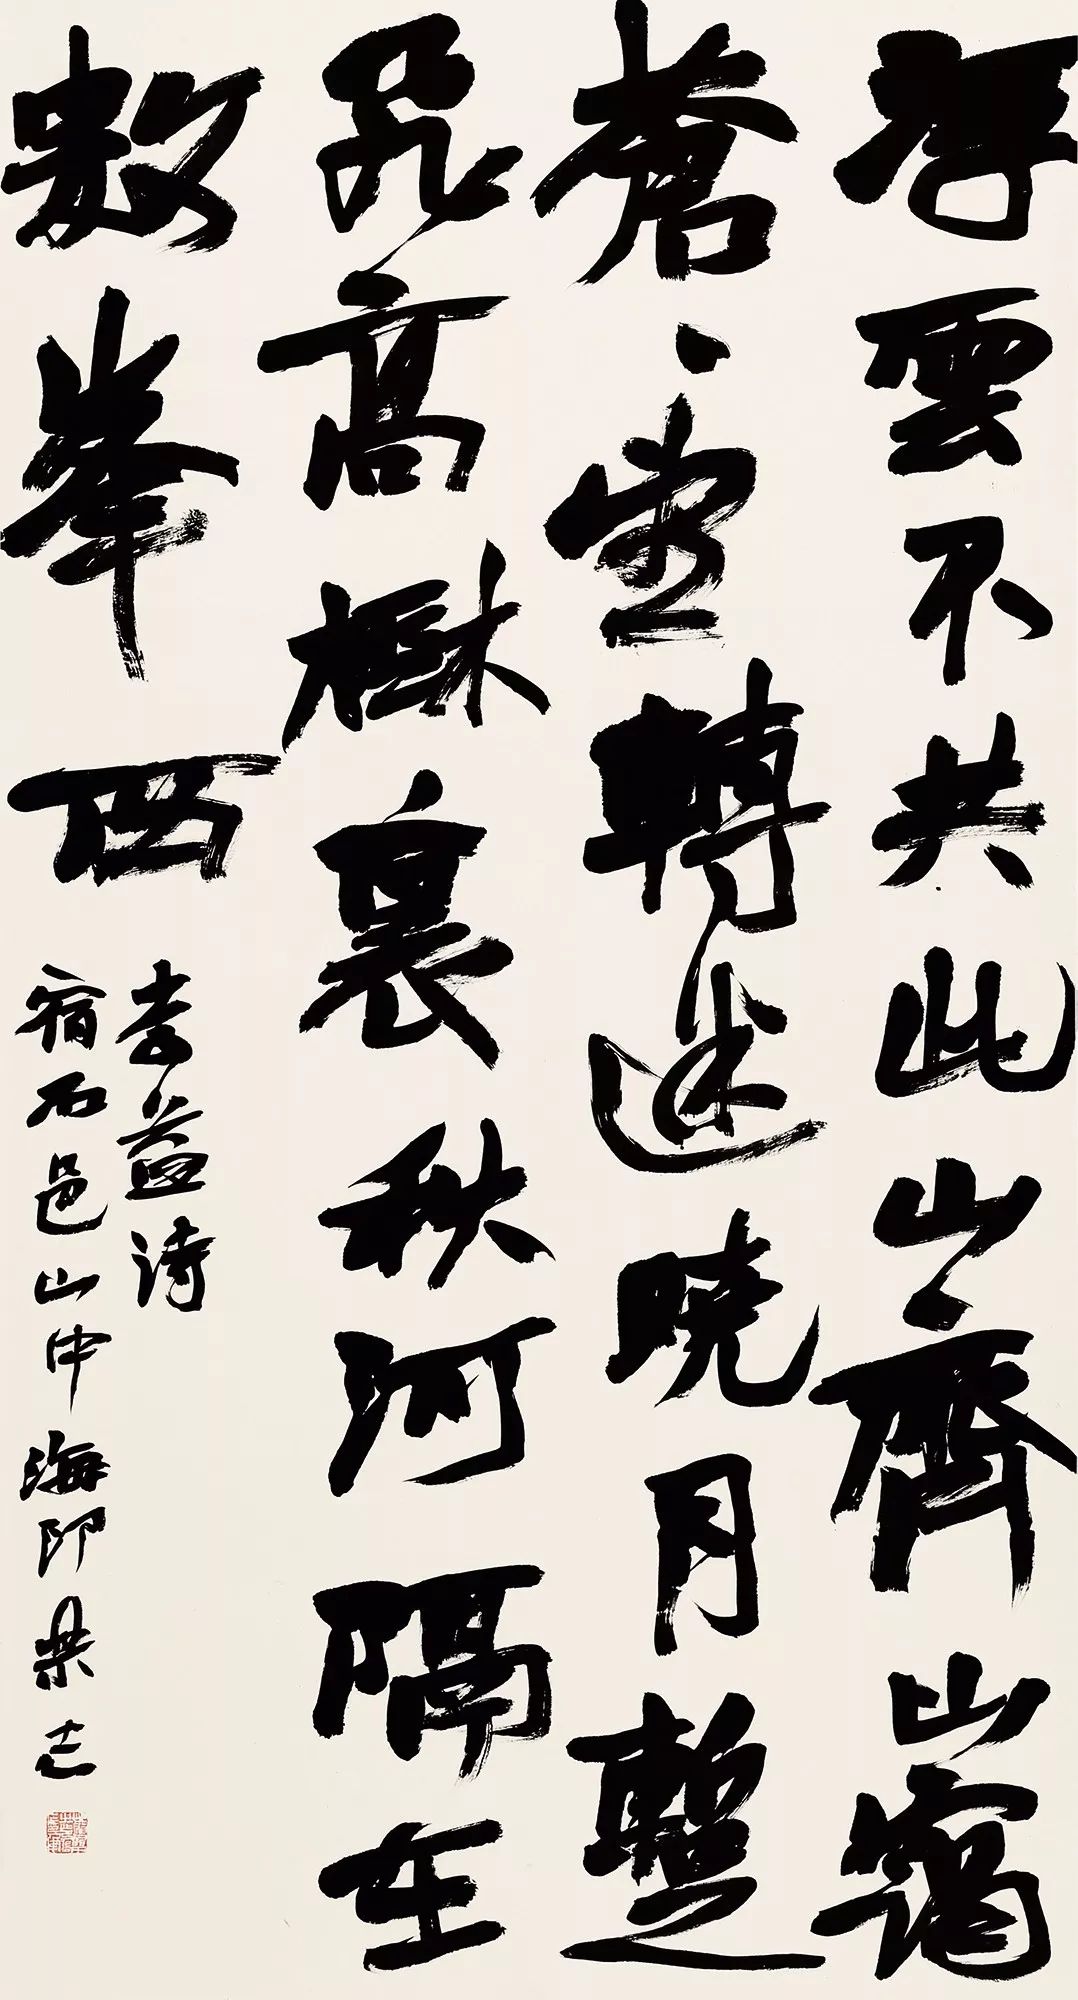 浮雲不共此山齊山靄
蒼々望轉迷曉月暫
飛高樹裏秋河隔在
數峯西
李益詩
宿石邑山中海印志